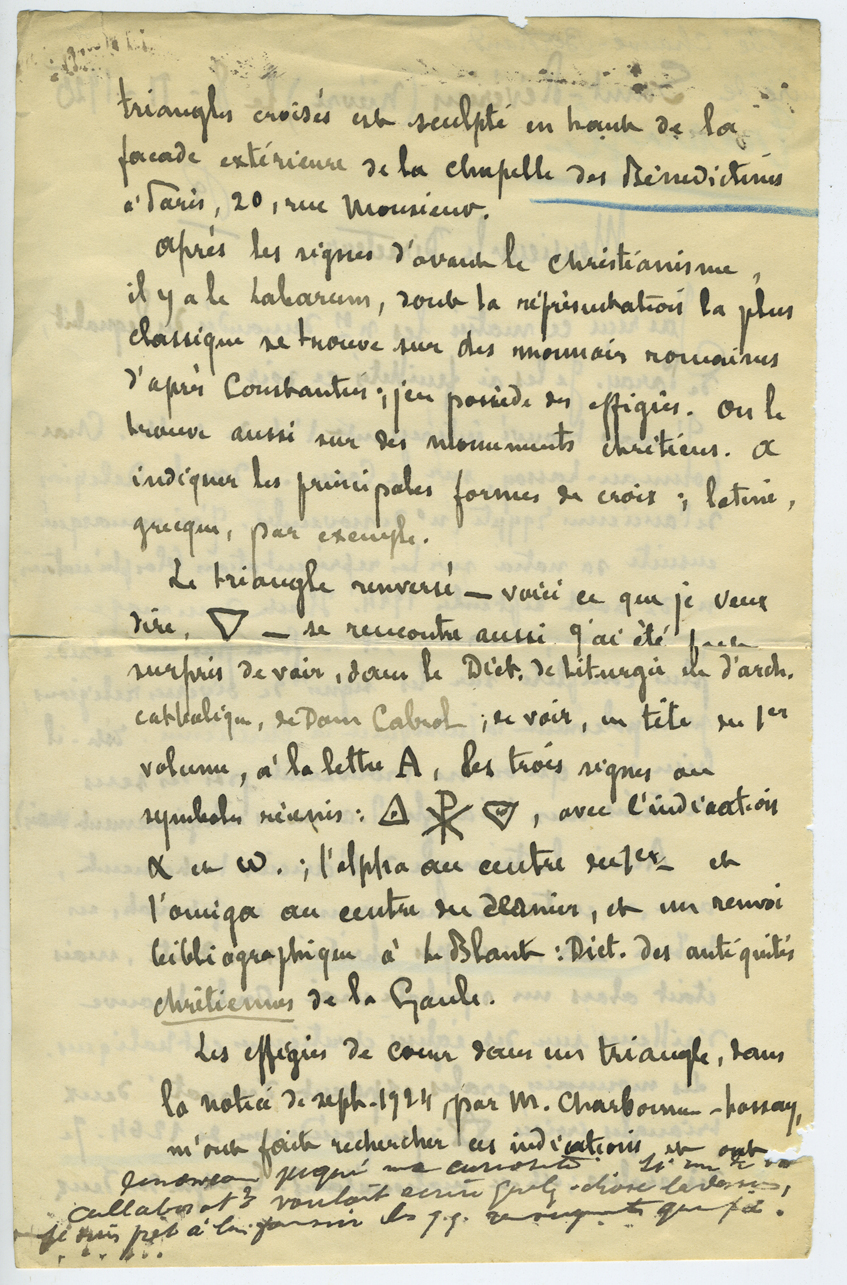 triangles croisés est sculpté en haut de la
façade extérieure de la chapelle des Bénédictines
à Paris, 20, rue Monsieur.
Après les signes d'avant le Christianisme,
il y a le Labarum, dont la représentation la plus
classique se trouve sur des monnaies romaines
d'après Constantin ; j'en possède des effigies. On le
trouve aussi sur des monuments chrétiens. A
indiquer les principales formes de croix ; latine,
grecque, par exemple.
Le triangle renversé — voici ce que je veux
dire, ▽ — se rencontre aussi. J'ai été
surpris de voir, dans le Dict. de Liturgie et d'arch.
catholique, de Dom Cabrol ; de voir, en tête du 1er
volume, à la lettre A, les trois signes ou
symboles réunis : △ ☧ ▽, avec l'indication
α et ω. ; l'alpha au centre du 1er et
l'oméga au centre du dernier, et un renvoi
bibliographique à Le Blant : Dict. des antiquités
chrétiennes de la Gaule.
Les effigies de cœur dans un triangle, dans
la notice de sept. 1924, par M. Charbonneau-Lassay,
m'ont fait rechercher ces indications et ont
piqué ma curiosité. Si un de vos
collaborat^rs voulait écrire quelq. chose là-dessus,
je suis prêt à lui fournir les q.q. que j'ai.